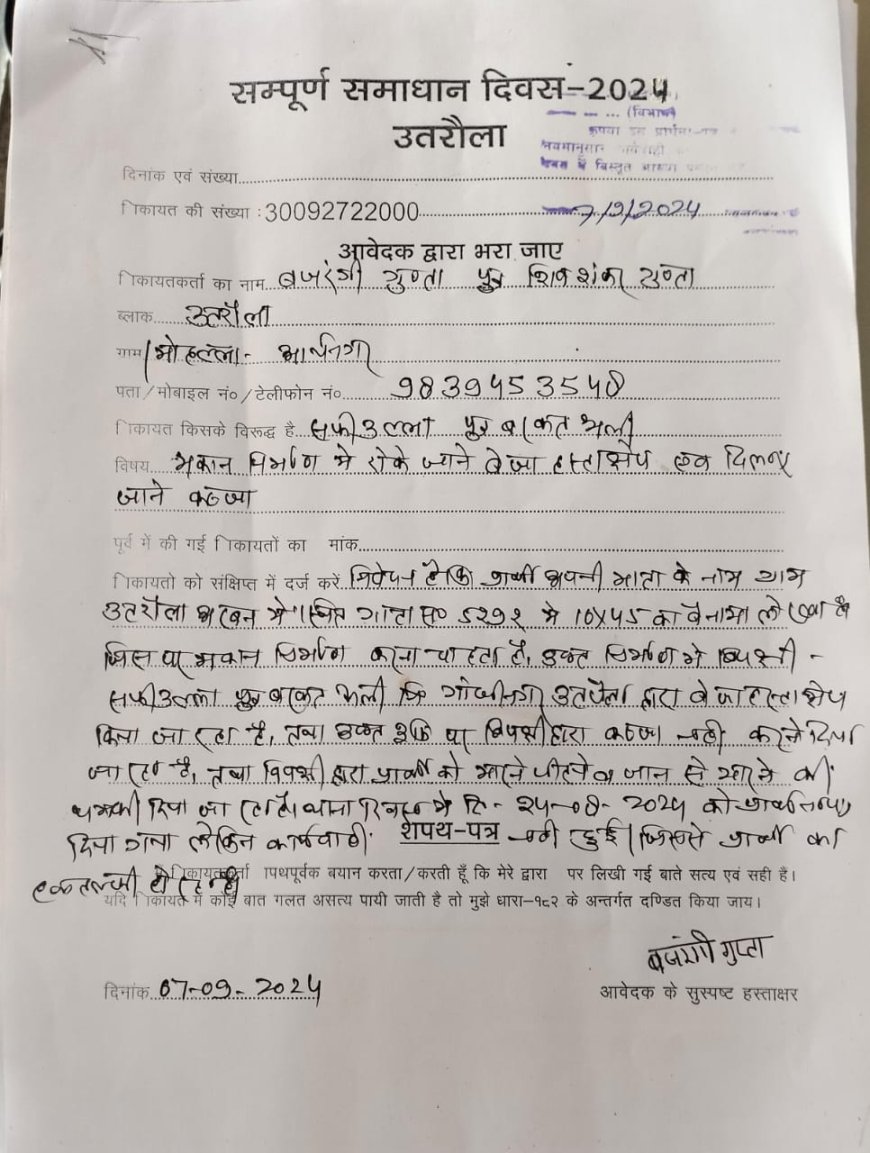 सम्पूर्ण समाधान दिवस-2024
उतरौला
(विभाग)
दिनांक एवं संख्या
िकायत की संख्या :30092722000 7/9/2024
आवेदक द्वारा भरा जाए
िकायतकर्ता का नाम बजरंगी गुप्ता पुत्र शिवशंकर गुप्ता
ब्लाक उतरौला
गाम/मोहल्ला- आर्यनगर
पता/मोबाइल नं०/टेलीफोन नं० 9839453548
िकायत किसके विरूद्ध है सफीउल्ला पुत्र बरकत अली
विषय मकान निर्माण मे रोके जाने बेजा हस्ताक्षेप एवं दिलाए
जाने कब्जा
पूर्व में की गई िकायतों का मांक
िकायतो को संक्षिप्त में दर्ज करें निवेदन है कि प्रार्थी अपनी माता के नाम ग्राम
उतरौला अरबन मे स्थित गाटा सं० 5292 मे 10x45 का बैनामा ले रखा है
जिस पर मकान निर्माण करना चाहता है, उक्त निर्माण मे विपक्षी -
सफीउल्ला पुत्र बरकत अली नि गांधीनगर उतरौला द्वारा बेजा हस्ताक्षेप
किया जा रहा है, तथा उक्त भूमि पर विपक्षी द्वारा कब्जा नही करने दिया
जा रहा है, तथा विपक्षी द्वारा प्रार्थी को मारने पीटने व जान से मारने की
धमकी दिया जा रहा है। थाना मे दि- 24-08-2024 को
दिया गया लेकिन कार्यवाही नही हुई। जिससे प्रार्थी का
शपथ-पत्र
हकतल्फी हो रही है
िकायतकर्ता ापथपूर्वक बयान करता/करती हूँ कि मेरे द्वारा पर लिखी गई बाते सत्य एवं सही है।
यदि िकायत में कोई बात गलत असत्य पायी जाती है तो मुझे धारा-१८२ के अन्तर्गत दण्डित किया जाय।
बजरंगी गुप्ता
दिनांक 07-09-2024 आवेदक के सुस्पष्ट हस्ताक्षर